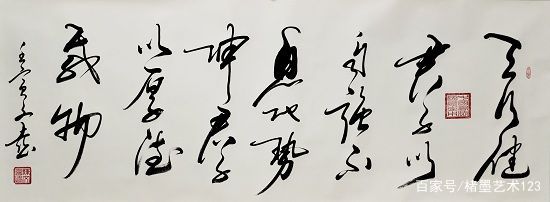 天行健
君子以
自強不
息地勢
坤君子
以厚德
載物
壬寅
百家号/楮墨艺术123